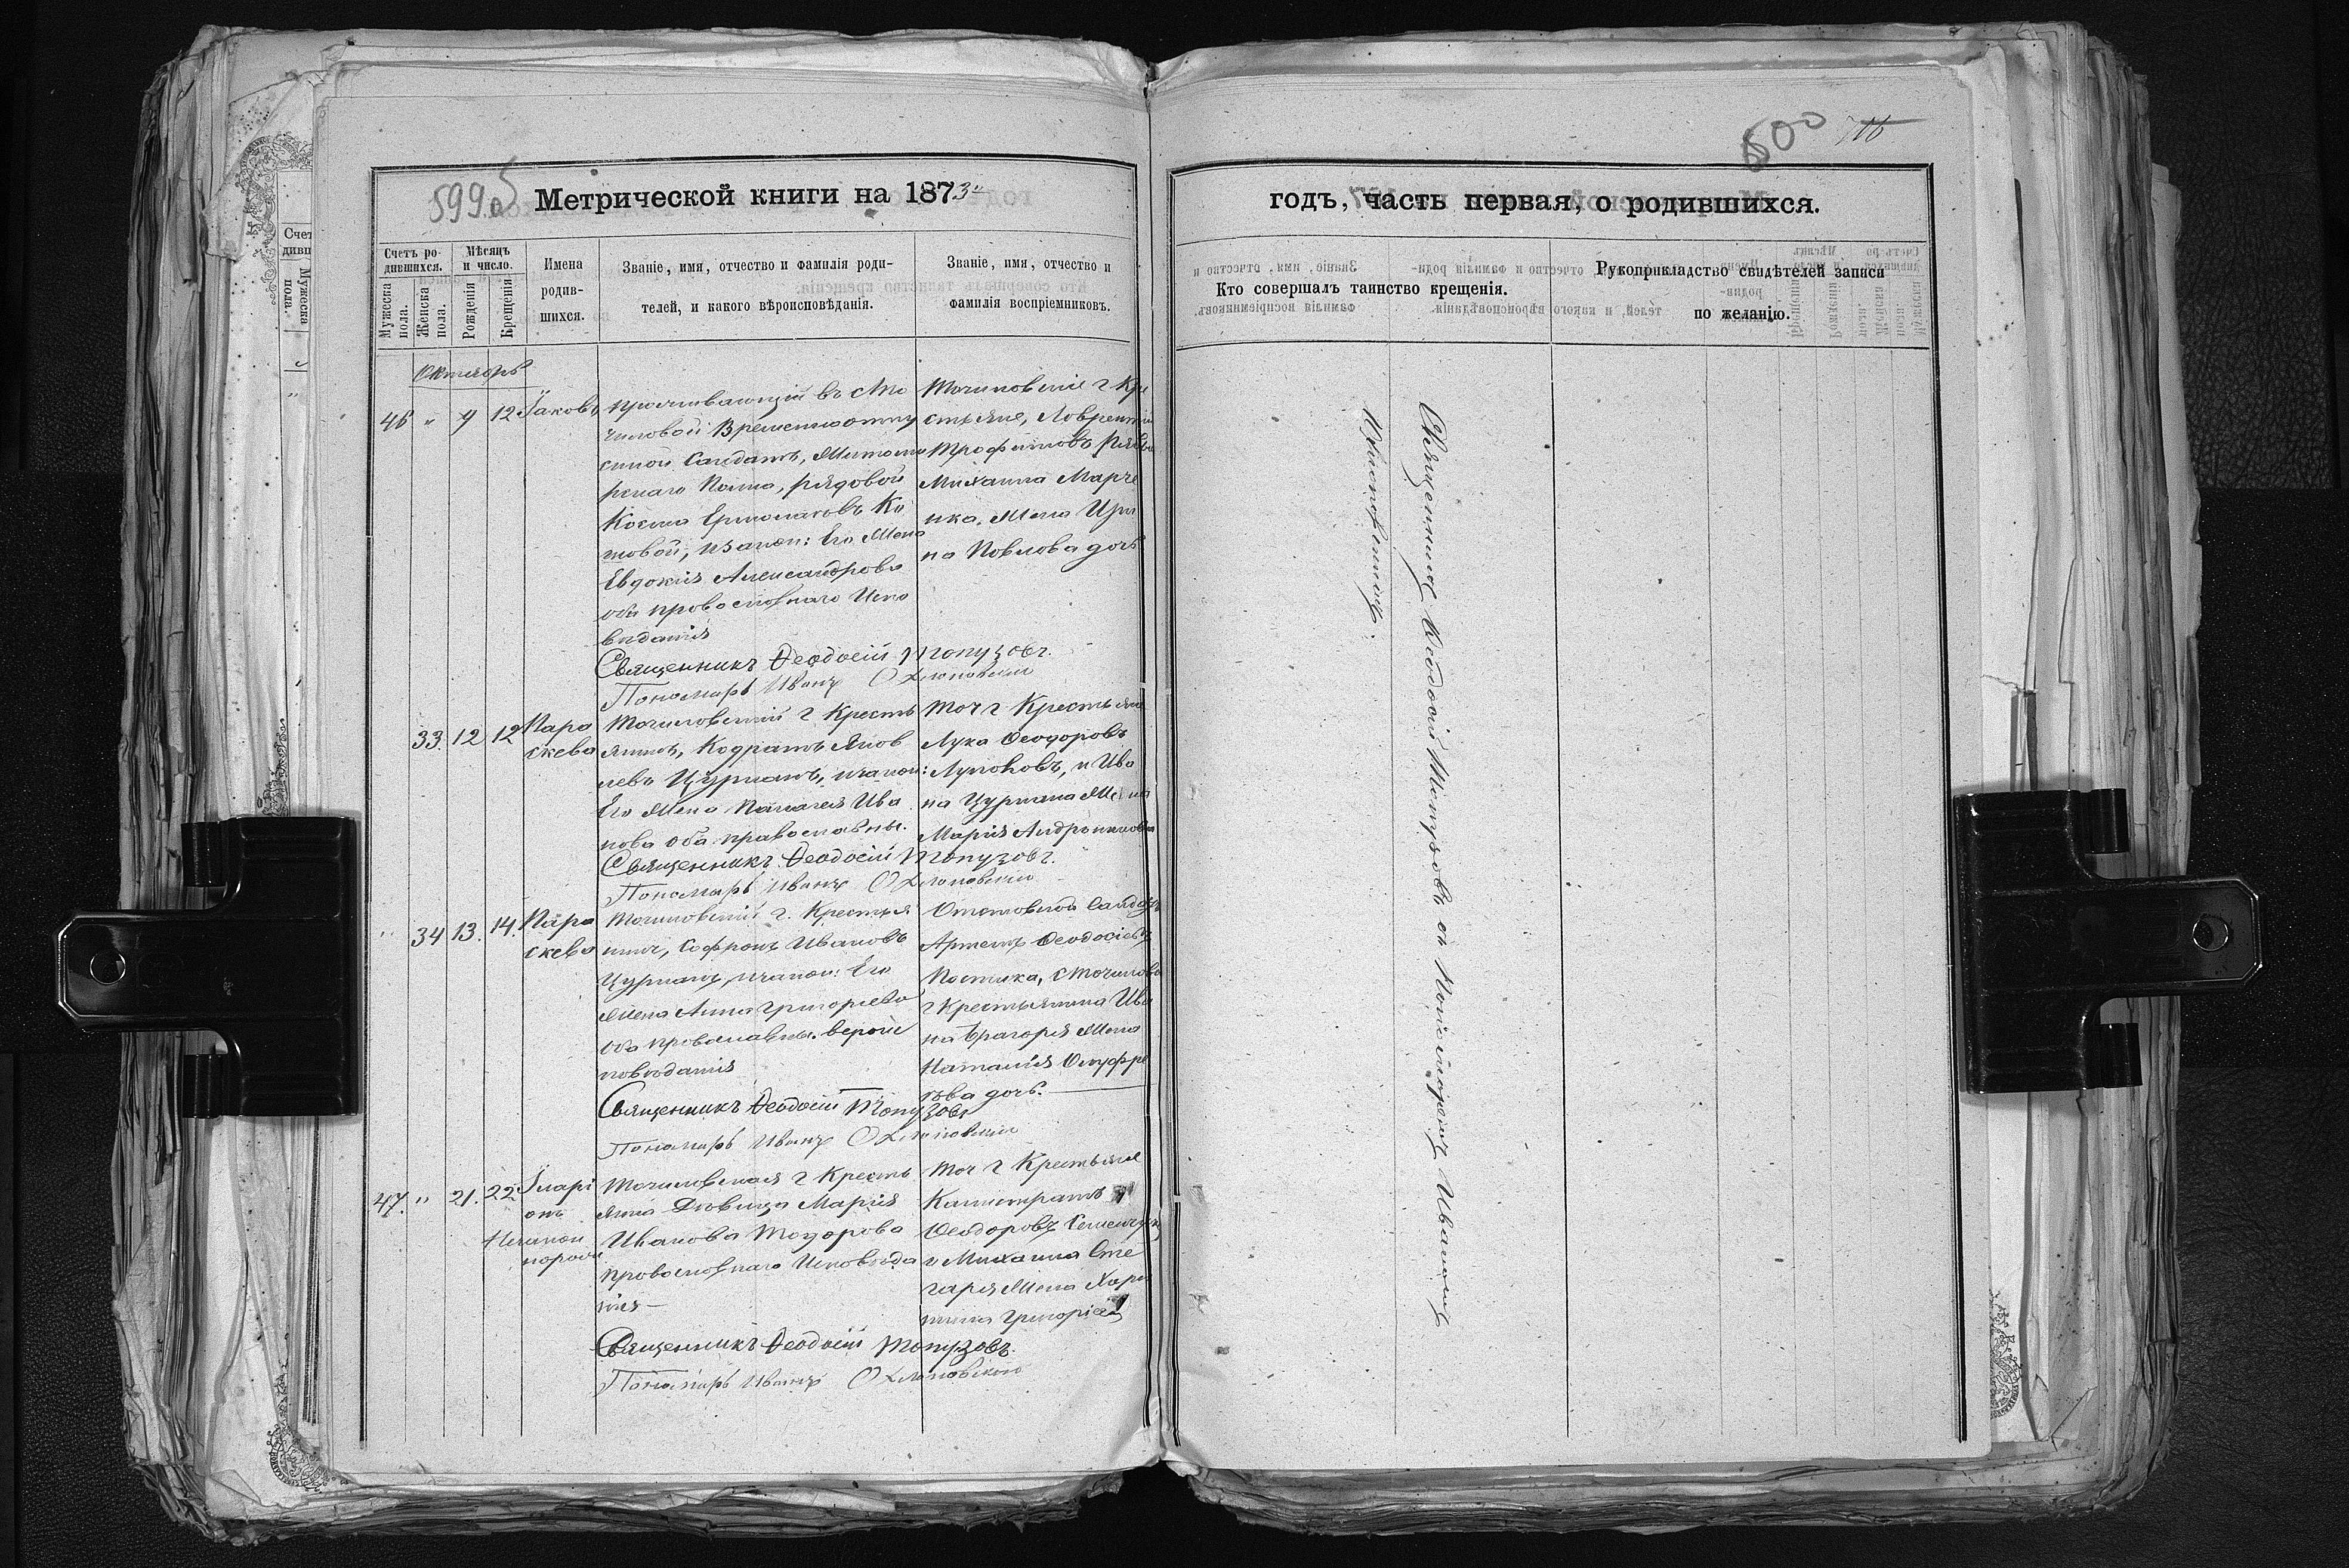 599об
Метрической книги на 1873й
Счетъ ро-
дившихся.
Мужеска пола.
Женска пола.
Мѣсяцъ
и число.
Рожденія
Крещенія
Имена
родив-
шихся.
Званіе, имя, отчество и фамилія роди-
телей, и какого вѣроисповѣданія.
Званіе, имя, отчество и
фамилія воспріемниковъ.
Октябрь
46 " 9 12 Іаковъ
Проживающій въ с
Временноотпу
Полка, рядовой
Косма Ермолаевъ
законн: Его Жена
Евдокія Александрова
оба православнаго Испо
веданія
крестьяне, Лаврентій
Трофимовъ
Михаила Марче
нка, Жена Ири
на Повлова дочь
Священникъ Ѳеодосій Топузовъ.
Пономарь Иванъ
33. 12 12 Пара
скева
Точиловскій г Кресть
янинъ, Кодратъ Яков
левъ Цурканъ, законн:
Его Жена Палагея Ива
нова оба православны.
Точ г Крестьяне
Лука Ѳеодоровъ
и Ива
на Цуркана Жена
Марія Андроникова
Священникъ Ѳеодосій Топузовъ.
Пономарь Иванъ
" 34 13. 14. Пара
скева
Точиловскій г. Крестья
нинъ, Софронъ Ивановъ
Цурканъ, законн: Его
Жена Анна Григорьева
оба православны. вероис
поведанія
Отставной Салдатъ
Артемъ Ѳеодосіевъ
Постика, с Точилово
г крестьянина Ива
на Жена
Наталія Онуфрі
ева дочь.
Священникъ Ѳеодосій Топузовъ
Пономарь Иванъ
47. " 21. 22 Іларі
онъ
Незакон
норож
Точиловская г Кресть
янка Девица Марія
Иванова Тодорова
православнаго Исповѣда
нія
Точ г Крестьяне
Калистратъ
Ѳеодоровъ
и Михаила
Жена Хари
тина Григоріева
Священникъ Ѳеодосій Топузовъ.
Пономарь Иванъ
600
годъ, часть первая, о родившихся.
Кто совершалъ таинство крещенія.
Рукоприкладство свидѣтелей записи
по желанію.
Священникъ Ѳеодосій Топузовъ съ Пономаремъ Иваномъ